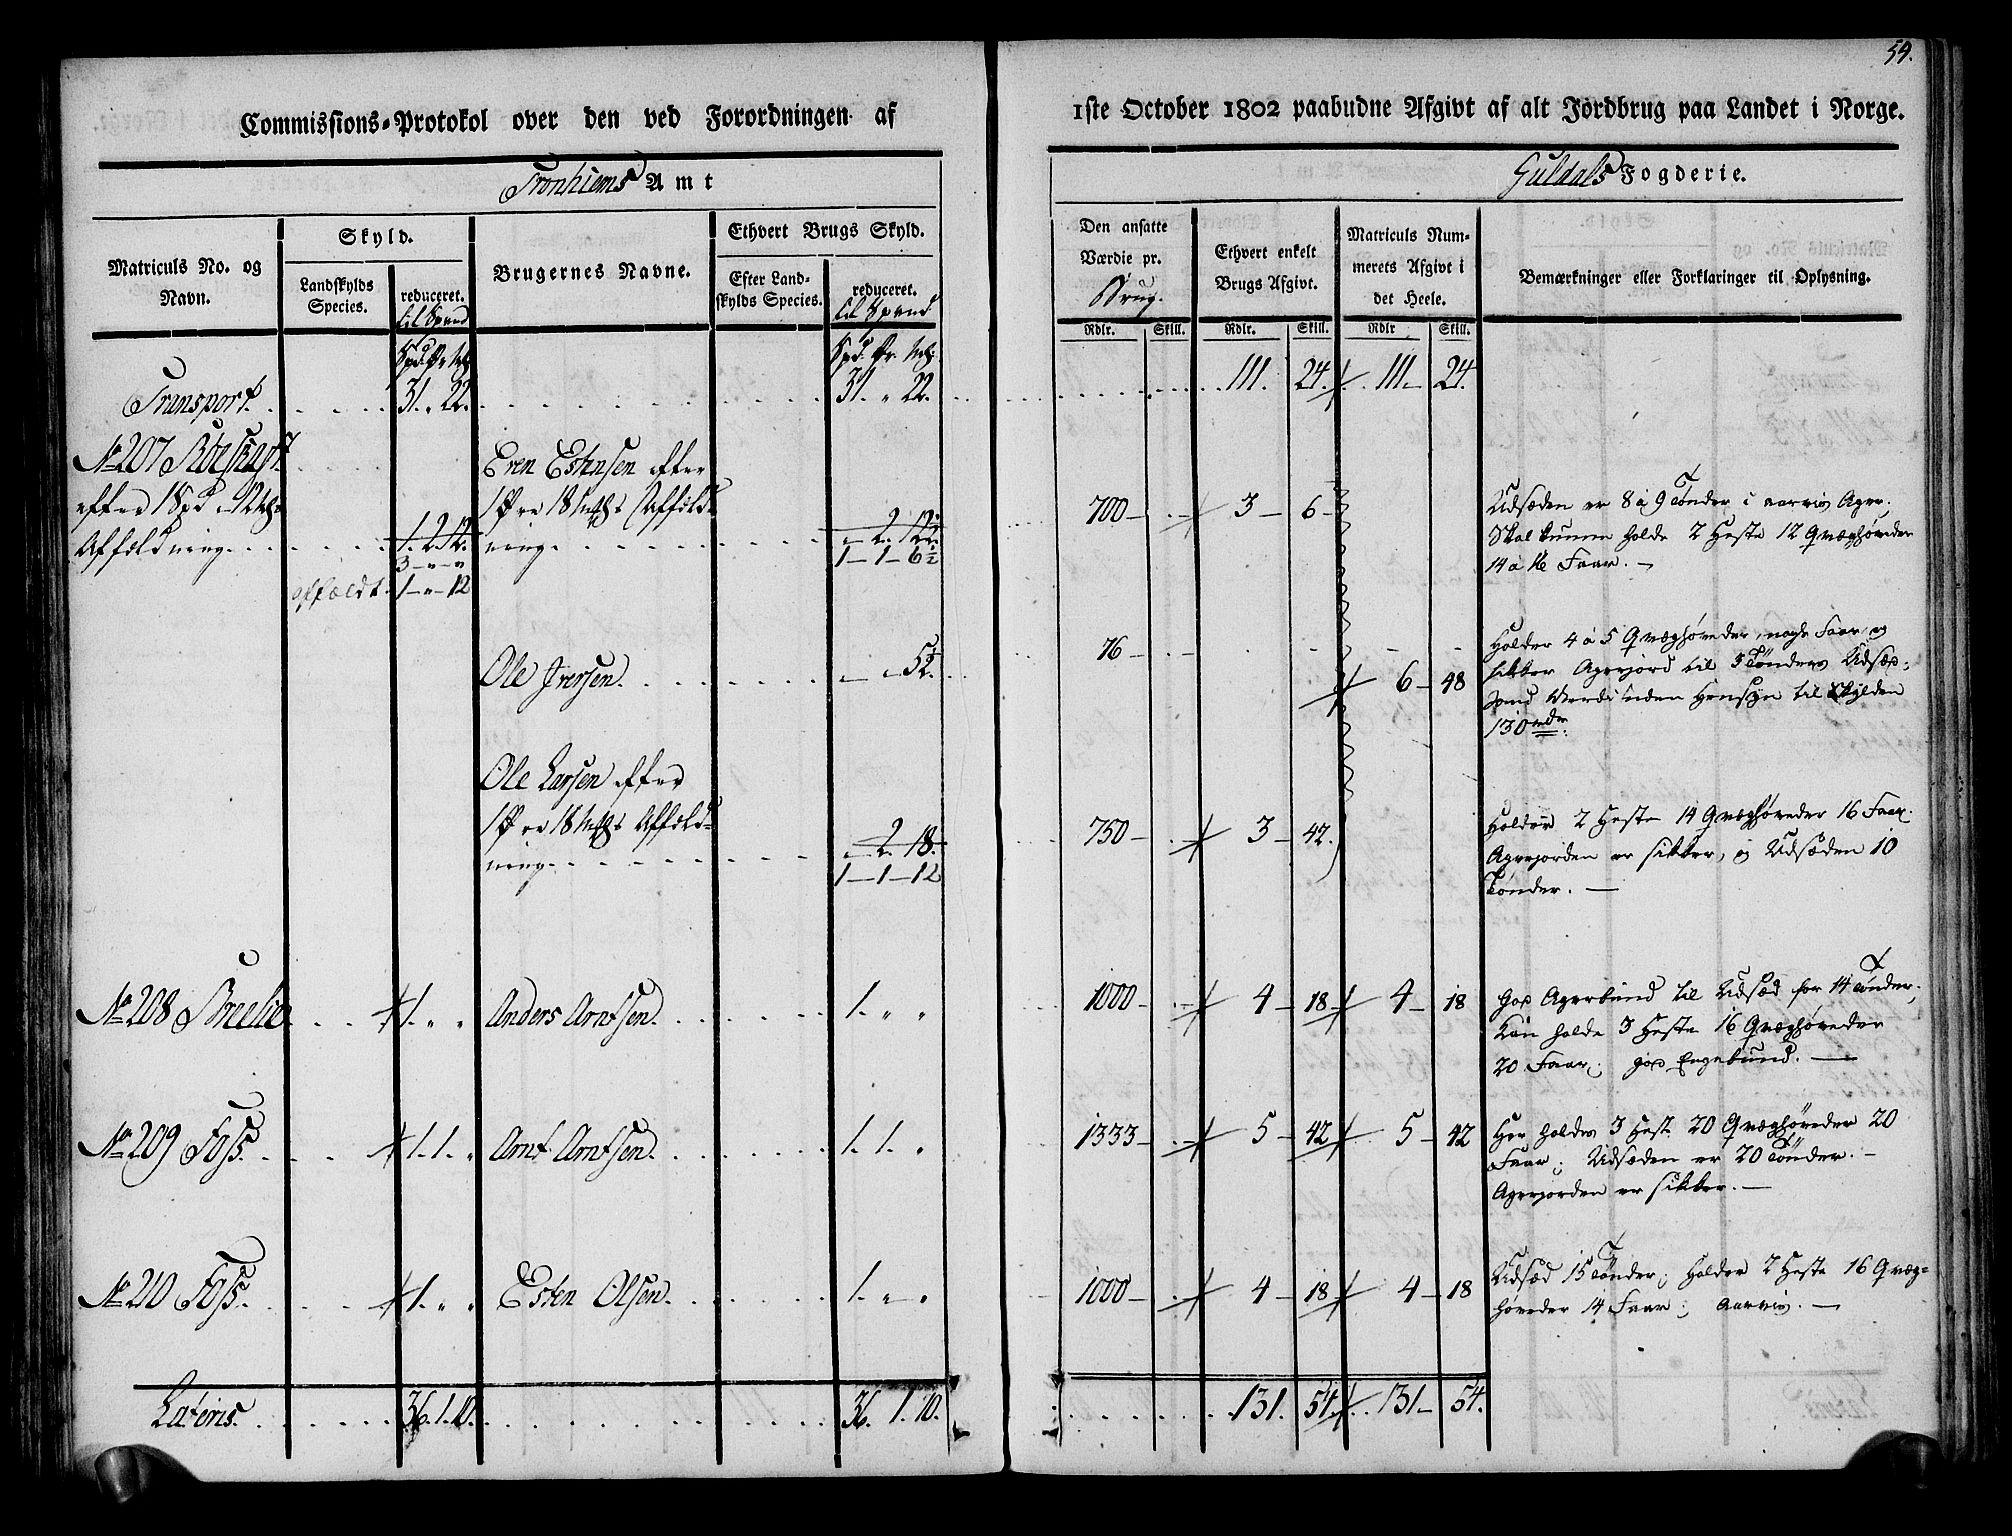 54.
Commissions-Protokol over den ved Forordningen af
1ste October 1802 paabudne Afgivt af alt Jordbrug paa Landet i Norge.
Tronhiems Amt
Guldals Fogderie.
Matriculs No. og Navn.
Skyld.
Landskylds Species.
reduceret. til Spand
Brugernes Navne.
Ethvert Brugs Skyld.
Efter Landskylds Species.
reduceret. til Spand
Den ansatte Værdie pr. Brug.
Ethvert enkelt Brugs Afgivt.
Matriculs Nummerets Afgivt i det Heele.
Bemærkninger eller Forklaringer til Oplysning.
Rdlr. Skill. Rdlr. Skill. Rdlr Skill.
Transport. 31. " 22. 31. " 22. 111. 24. 111. 24.
No 207
efter 1 Spd " 12 Mks
Affældning. 1. 2. 12.
3 - " - "
affældt 1 - " - 12
Even Estensen efter
18 Mks Affæld=
ning. 2. 12½
1 - 1 - 6½
700 3 6
Udsæden er 8 a 9 Tønder i aarviis Ager.
Skal kunne holde 2 Heste 12 Qvæghøveder
14 a 16 Faar.
Ole Iversen. 5½.
76 6 48
Holder 4 a 5 Qvæghøveder, nogle Faar og
sikker Agerjord til 5 Tønders Udsæd;
Værdi uden Hensyn til Skylden
130 rdr.
Ole Larsen efter
18 Mks Affæld=
ning. 2. 18.
1 - 1 - 12
750 3 42.
Holder 2 Heste 14 Qvæghøveder 16 Faar.
Agerjorden er sikker, og Udsæden 10
Tønder.
No 208 Breelie. 1. " " Anders Arntsen. 1. " " 1000 4 18 4 18
God Agerbund til Udsæd for 14 Tønder;
Kan holde 3 Heste 16 Qvæghøveder
20 Faar; god Engebund.
No 209 Foss. 1. 1. " Arnt Arntsen. 1. 1. " 1333 5 42 5 42
Her holdes 3 Heste 20 Qvæghøveder 20
Faar; Udsæden er 20 Tønder.
Agerjorden er sikker.
No 210 Foss. 1. " " Esten Olsen. 1. " " 1000 4 18 4 18
Udsæd 15 Tønder; Holder 2 Heste 16 Qvæg=
høveder 14 Faar; aarviis.
Lateris. 36. 1. 10. 36. 1. 10. 131. 54. 131. 54.